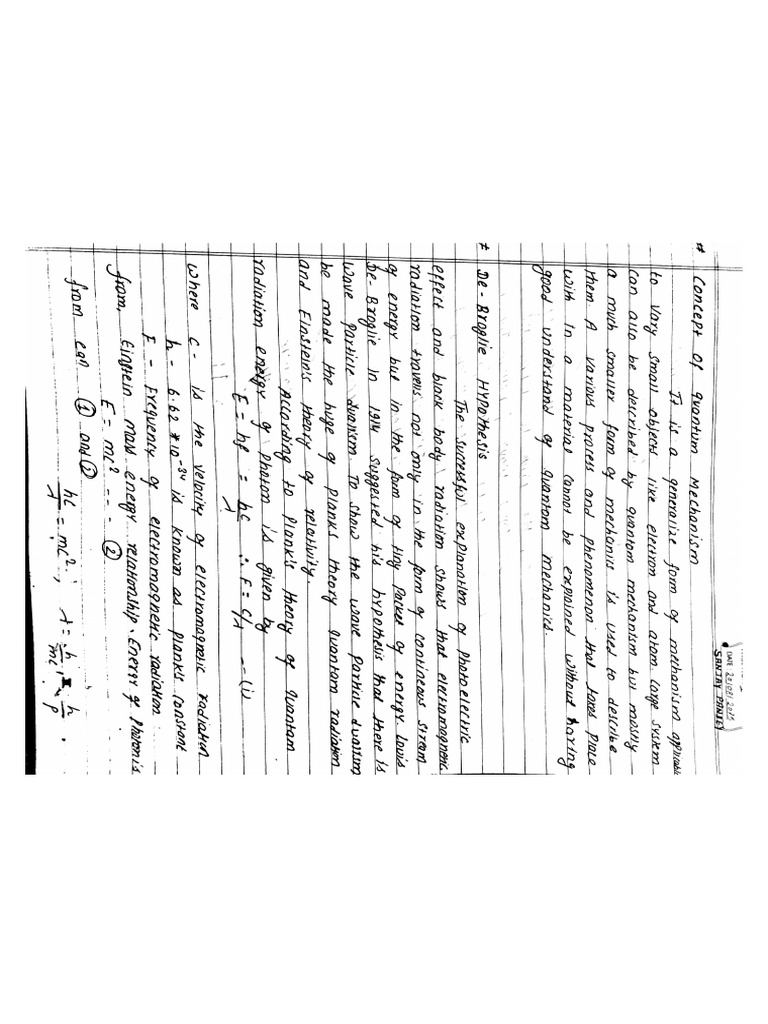 DATE 22/08/2025
SANJAY PANDEY
# Concept Of quantum Mechanism
It is a generalize form of mechanism applicable
to vary small objects like electron and atom large system
can also be described by quantom mechanism but mostly
a much smaller form of mechanics is used to describe
them. A various process and phenomenon that takes place
with in a material cannot be expained without having
good understand of quantom mechanics.
# De-Broglie Hypothesis
The successful explanation of Photoelectric
effect and black body radiation shows that electromagnetic
radiation travells not only in the form of contineous stream
of energy but in the form of tiny Packet of energy. Louis
De-Broglie in 1914 suggested his hypothesis that there is
Wave particle dualism. To show the wave particle dualism
be made the huge of Planks theory quantam radiation
and Einstein's theory of relativity.
According to Plank's theory of quantam
radiation energy of Photon is given by
E = hf = hc/λ ∴ F = c/λ – (i)
Where c - is the velocity of electromagnetic radiation
h - 6.62 * 10^-34 is known as planks constant
F - Frequency of electromagnetic radiation.
from, Einstein mass energy relationship. Energy of Photon is
E = mc² -- - ②
from eqn ① and ②
hc/λ = mc² ; λ = h/mc = h/p .